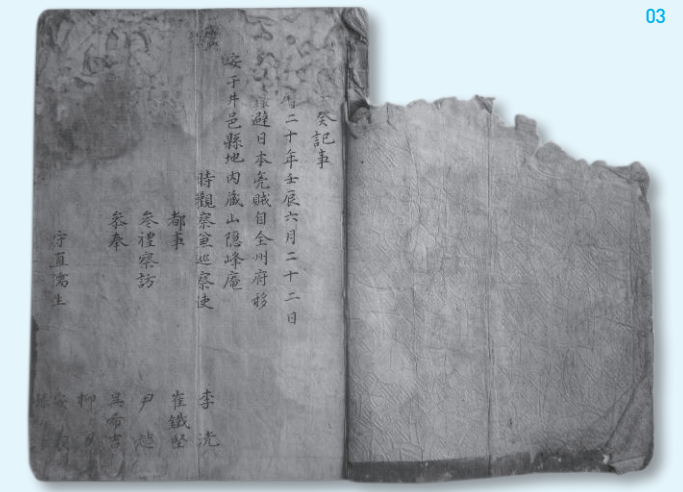 03
癸記事
二十年壬辰六月二十二日
避日本兇賊自全州府移
安于井邑縣地內藏山隱峰庵
時觀察兼巡察使 李洸
都事 崔鐵堅
參禮察訪 尹趌
參奉 吳希吉
柳
守直儒生 安
孫